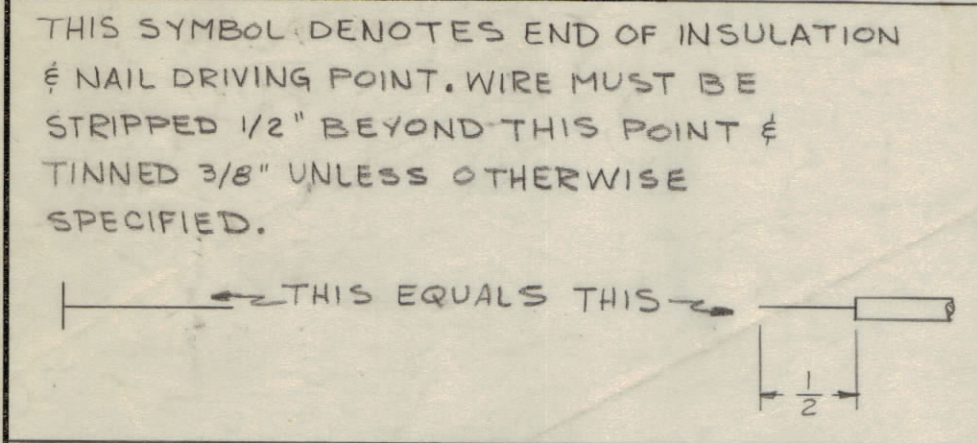 THIS SYMBOL DENOTES END OF INSULATION
& NAIL DRIVING POINT. WIRE MUST BE
STRIPPED 1/2" BEYOND THIS POINT &
TINNED 3/8" UNLESS OTHERWISE
SPECIFIED.
THIS EQUALS THIS
1/2